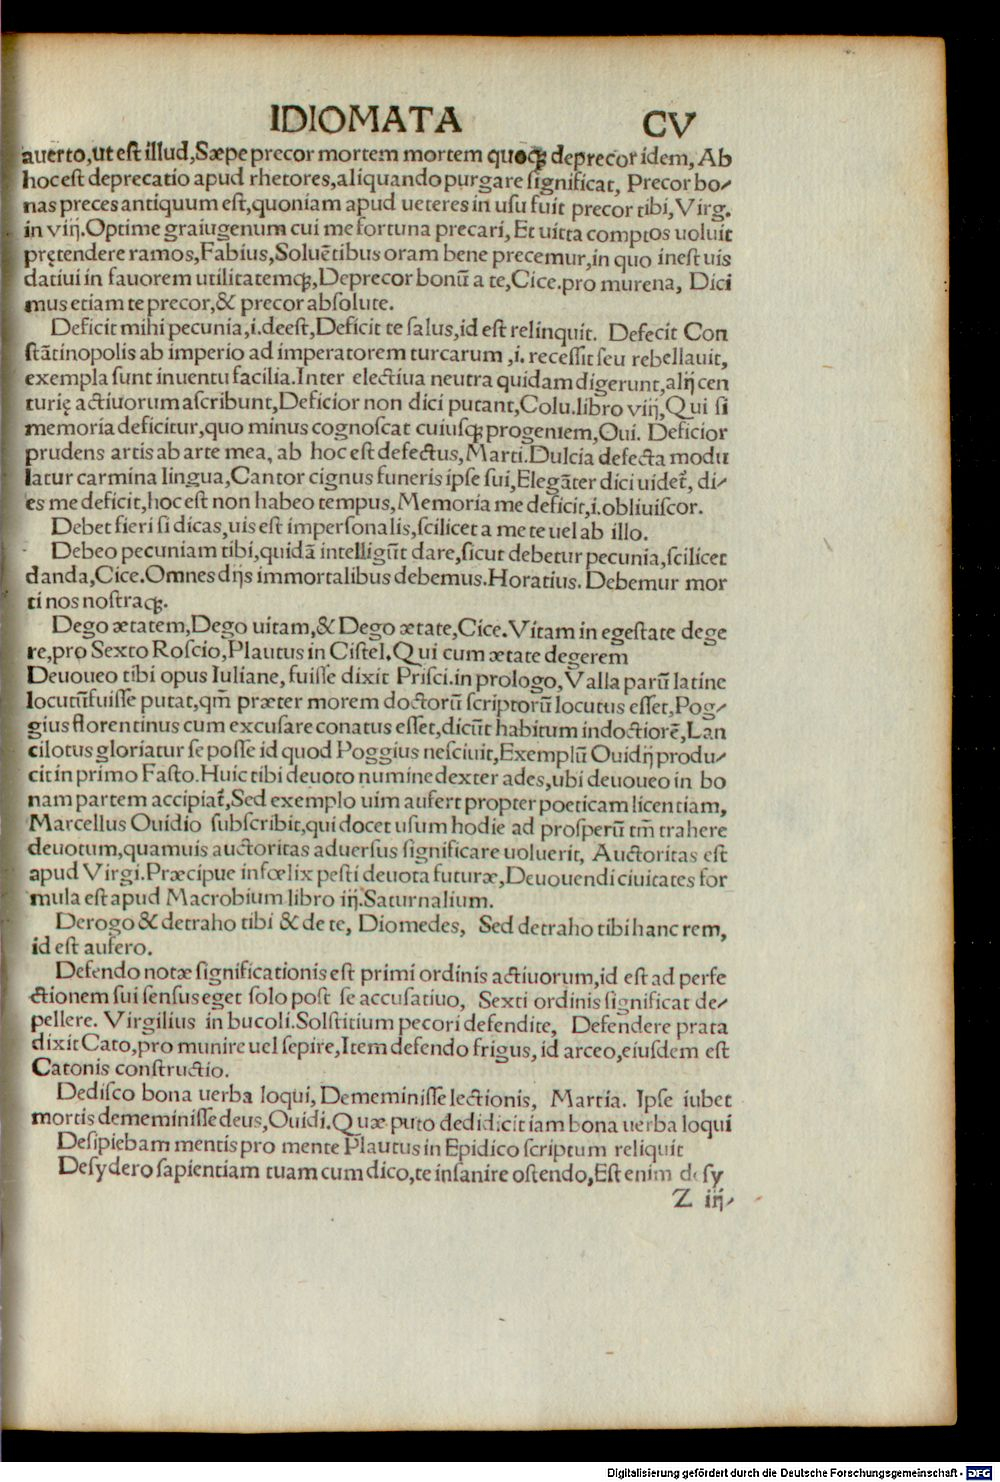 IDIOMATA CV
auerto,ut est illud,Sæpe precor mortem mortem quoqꝫ deprecor idem, Ab
hoc est deprecatio apud rhetores,aliquando purgare significat, Precor bo-
nas preces antiquum est,quoniam apud ueteres in usu fuit precor tibi,Virg.
in viij.Optime graiugenum cui me fortuna precari, Et uitta comptos uoluit
prętendere ramos,Fabius,Soluẽtibus oram bene precemur,in quo inest uis
datiui in fauorem utilitatemqꝫ,Deprecor bonũ a te,Cice.pro murena, Dici
mus etiam te precor,& precor absolute.
Deficit mihi pecunia,i.deest,Deficit te salus,id est relinquit. Defecit Con
stãtinopolis ab imperio ad imperatorem turcarum ,i. recessit seu rebellauit,
exempla sunt inuentu facilia.Inter electiua neutra quidam digerunt,alij cen
turię actiuorum ascribunt,Deficior non dici putant,Colu.libro viij,Qui si
memoria deficitur,quo minus cognoscat cuiusqꝫ progeniem,Oui. Deficior
prudens artis ab arte mea, ab hoc est defectus,Marti.Dulcia defecta modu
latur carmina lingua,Cantor cignus funeris ipse sui,Elegãter dici uidet̃, di-
es me deficit,hoc est non habeo tempus,Memoria me deficit,i.obliuiscor.
Debet fieri si dicas,uis est impersonalis,scilicet a me te uel ab illo.
Debeo pecuniam tibi,quidã intelligũt dare,sicut debetur pecunia,scilicet
danda,Cice.Omnes dijs immortalibus debemus.Horatius. Debemur mor
ti nos nostraqꝫ.
Dego ætatem,Dego uitam,& Dego ætate,Cice.Vitam in egestate dege
re,pro Sexto Roscio,Plautus in Cistel.Qui cum ætate degerem
Deuoueo tibi opus Iuliane, fuisse dixit Prisci.in prologo,Valla parũ latine
locutũ fuisse putat,qm̃ præter morem doctorũ scriptorũ locutus esset,Pog-
gius florentinus cum excusare conatus esset,dicũt habitum indoctiorẽ,Lan
cilotus gloriatur se posse id quod Poggius nesciuit,Exemplũ Ouidij produ-
cit in primo Fasto.Huic tibi deuoto numine dexter ades,ubi deuoueo in bo
nam partem accipiat̃,Sed exemplo uim aufert propter poeticam licentiam,
Marcellus Ouidio subscribit,qui docet usum hodie ad prosperũ tm̃ trahere
deuotum,quamuis auctoritas aduersus significare uoluerit, Auctoritas est
apud Virgi.Præcipue infœlix pesti deuota futuræ,Deuouendi ciuitates for
mula est apud Macrobium libro iij.Saturnalium.
Derogo & detraho tibi & de te, Diomedes, Sed detraho tibi hanc rem,
id est aufero.
Defendo notæ significationis est primi ordinis actiuorum,id est ad perfe
ctionem sui sensus eget solo post se accusatiuo, Sexti ordinis significat de-
pellere. Virgilius in bucoli.Solstitium pecori defendite, Defendere prata
dixit Cato,pro munire uel sepire,Item defendo frigus, id arceo,eiusdem est
Catonis constructio.
Dedisco bona uerba loqui, Dememinisse lectionis, Martia. Ipse iubet
mortis dememinisse deus,Ouidi.Quæ puto dedidicit iam bona uerba loqui
Desipiebam mentis pro mente Plautus in Epidico scriptum reliquit
Desydero sapientiam tuam cum dico,te insanire ostendo,Est enim desy
Z iij
Digitalisierung gefördert durch die Deutsche Forschungsgemeinschaft - DFG